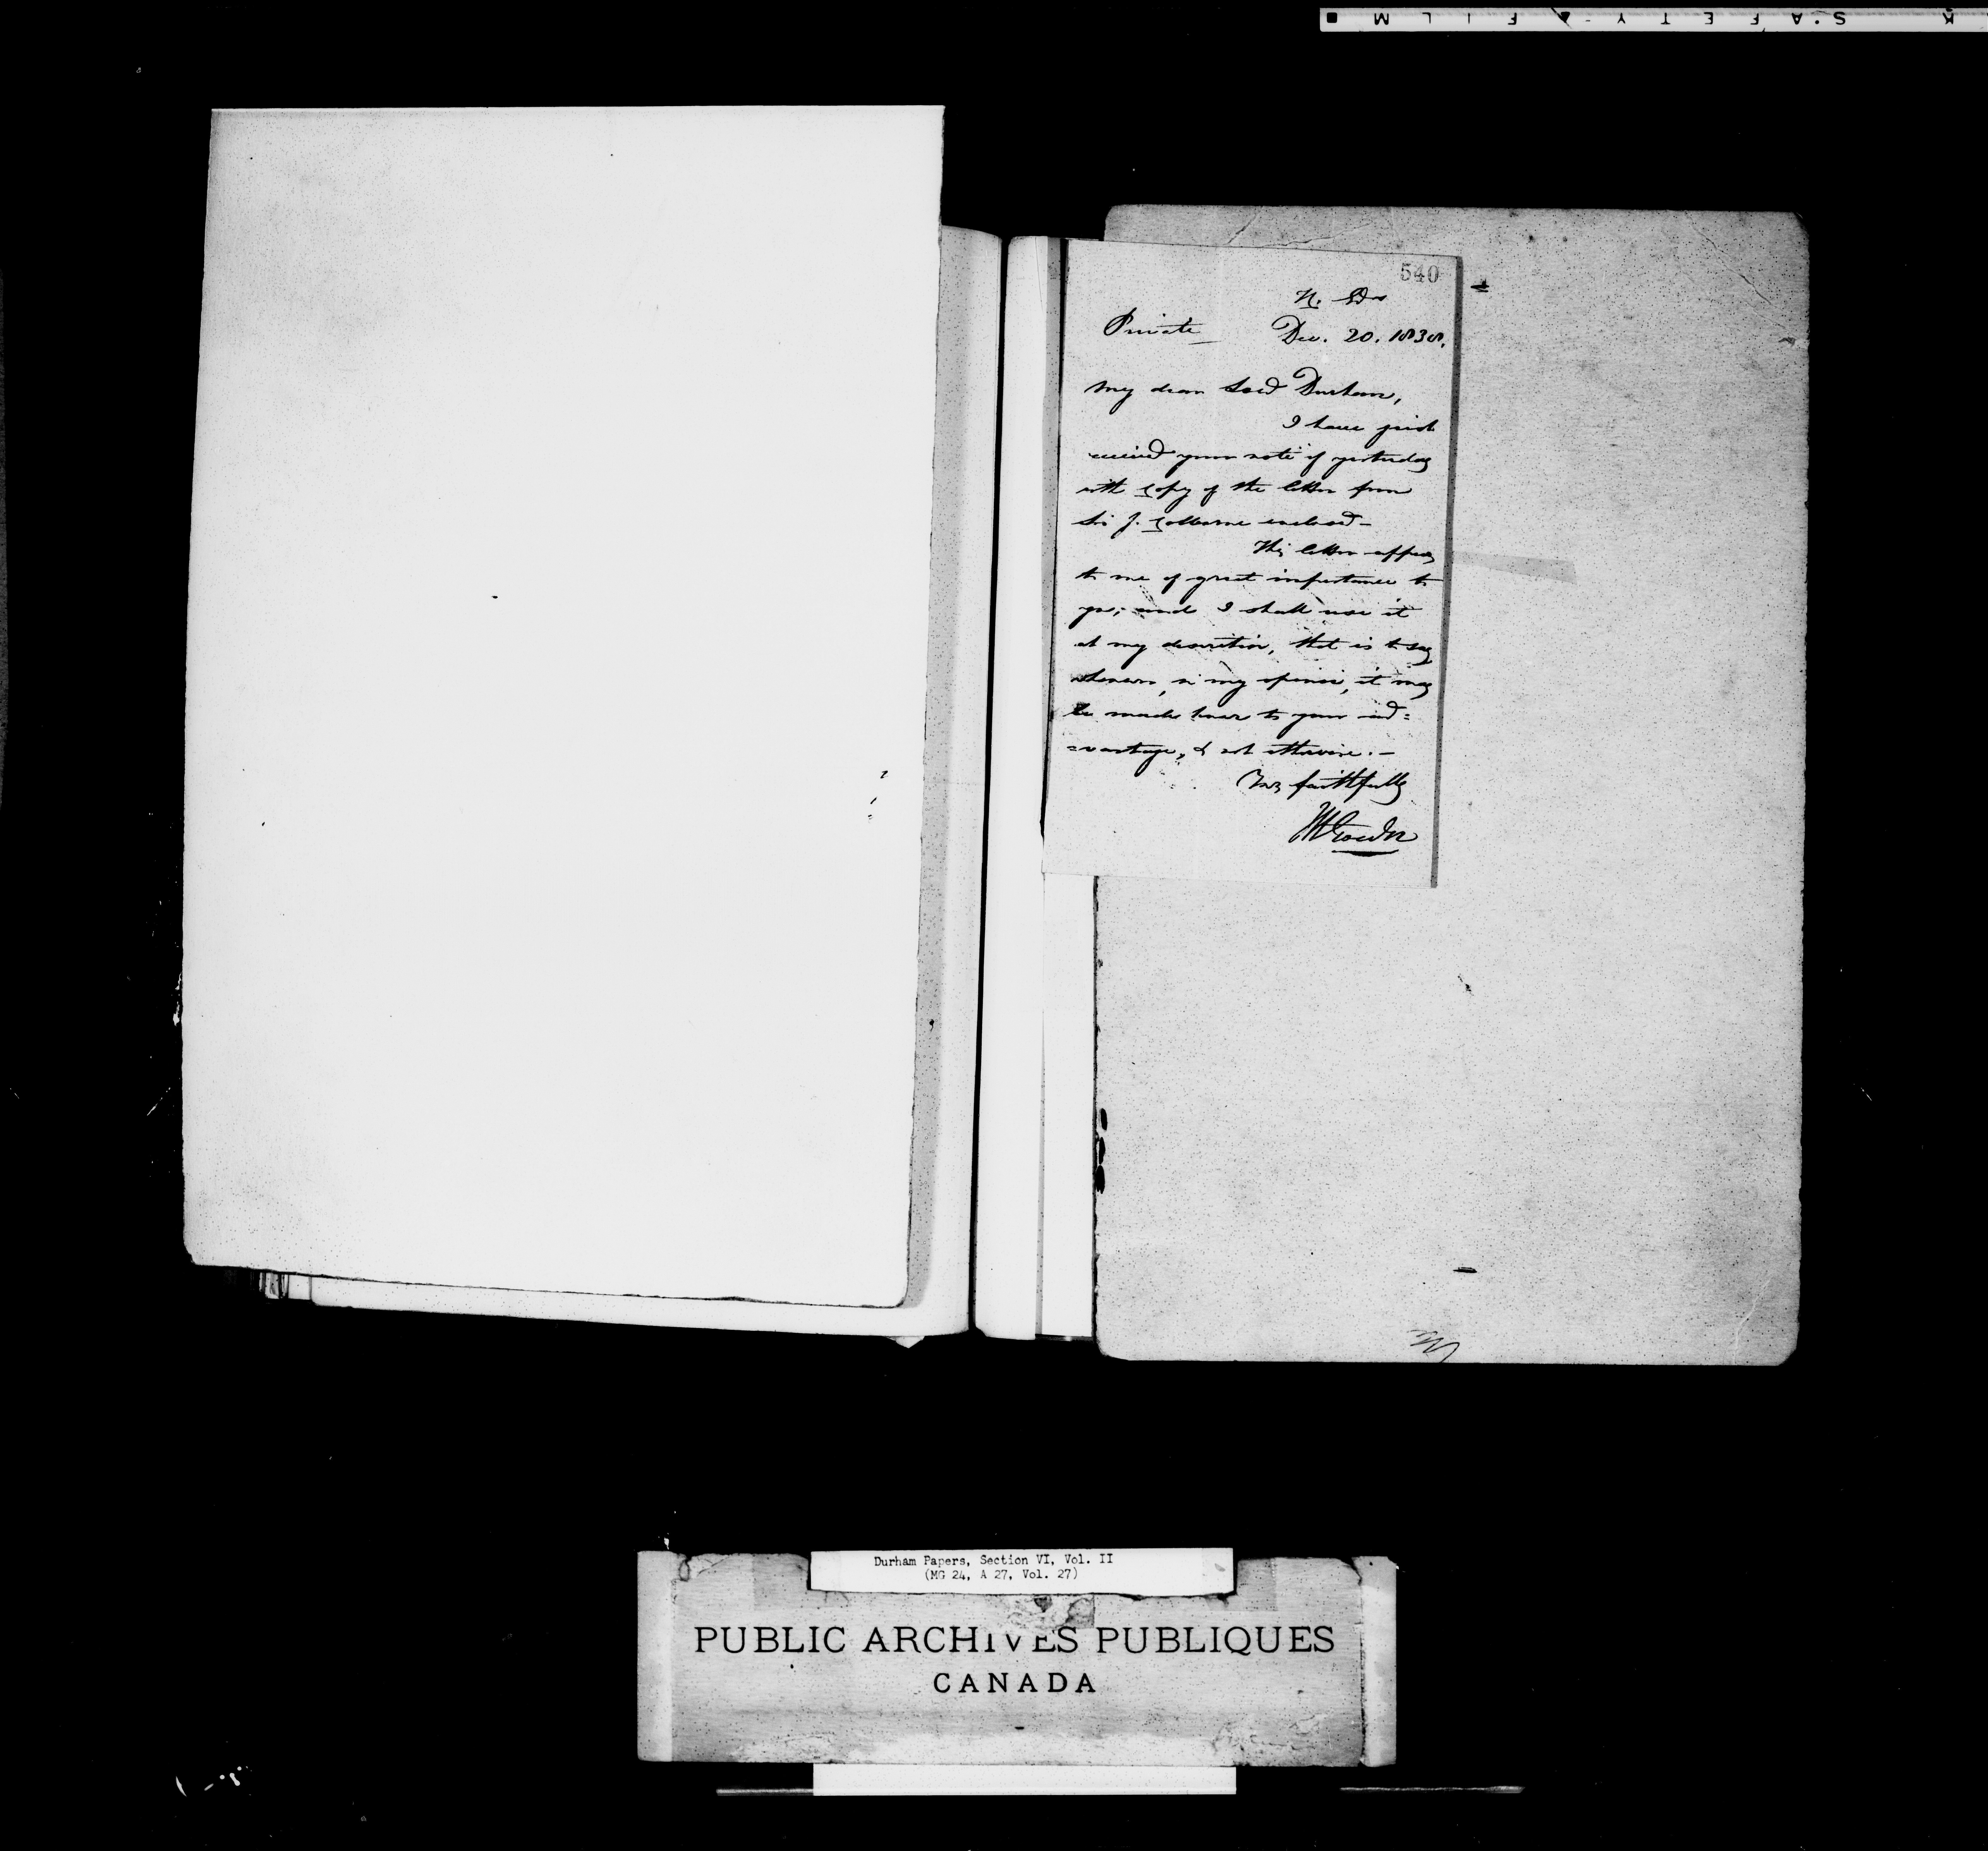 K SAFETY FILM
540
Private
Dec. 20. 1838.
My dear Lord Durham,
I have just
received your note of yesterday
with Copy of the letter from
Sir J. Colborne enclosed –
This letter appears
to me of great importance to
you; and I shall use it
at my discretion, that is to say
whenever, in my opinion, it may
be made known to your ad=
=vantage, & not otherwise. –
Yrs faithfully
Durham Papers, Section VI, Vol. II
(MG 24, A 27, Vol. 27)
PUBLIC ARCHIVES PUBLIQUES
CANADA